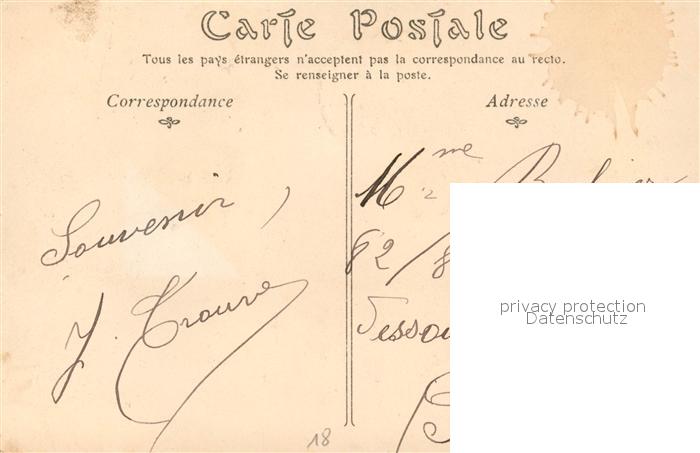 Carte Postale
Tous les pays étrangers n'acceptent pas la correspondance au recto.
Se renseigner à la poste.
Correspondance
Adresse
Souvenir
J. Trouvé
Mme
82/8
privacy protection
Datenschutz
18